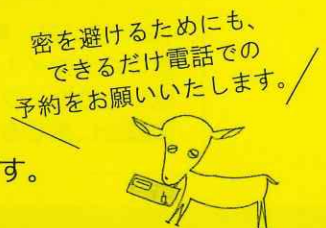 密を避けるためにも、
できるだけ電話での
予約をお願いいたします。
す。